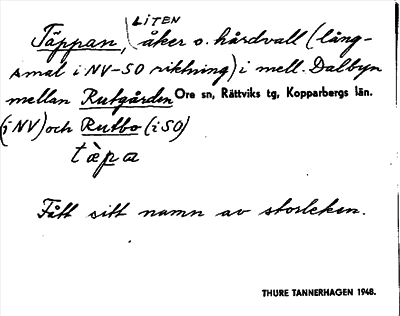 Täppan, LITEN åker o. hårdvall (lång-
smal i NV-SO riktning) i mell. Dalbyn
mellan Rutgården Ore sn, Rättviks tg, Kopparbergs län.
(i NV) och Rutbo (i SO)
tàpa
Fått sitt namn av storleken.
THURE TANNERHAGEN 1948.